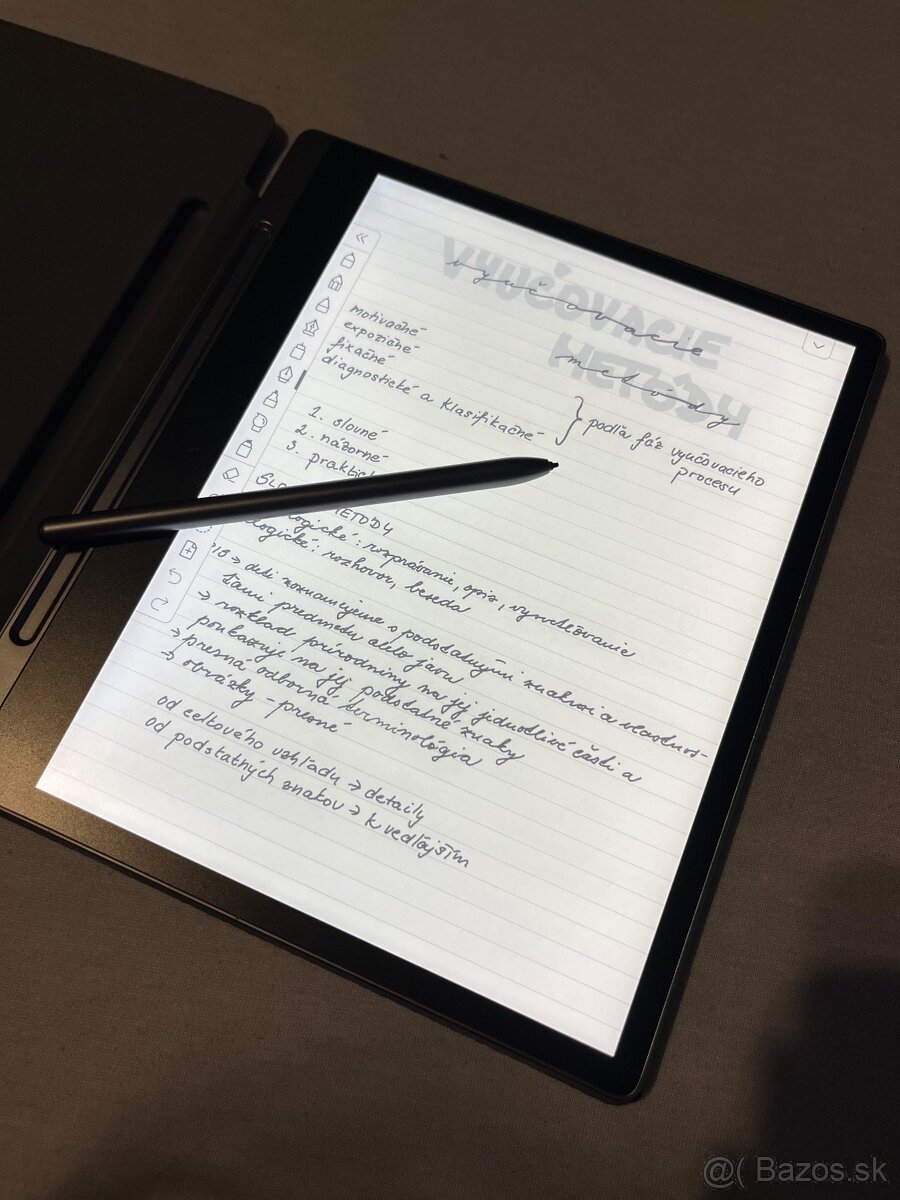 VYUČOVACIE
METÓDY
vyučovacie
metódy
motivačné
expozičné
fixačné
diagnostické a klasifikačné
} podľa fáz vyučovacieho
procesu
1. slovné
2. názorné
3. praktic
SLO
METÓDY
logické: rozprávanie, opis, vysvetľovanie
logické: rozhovor, beseda
PIS → deti zoznamujeme s podstatnými znakmi a vlastnos-
ťami predmetu alebo javu
→ rozklad prírodniny na jej jednotlivé časti a
poukazuje na jej podstatné znaky
→ presná odborná terminológia
→ obrázky - presné
od celkového vzhľadu → detaily
od podstatných znakov → k vedľajším
@( Bazos.sk